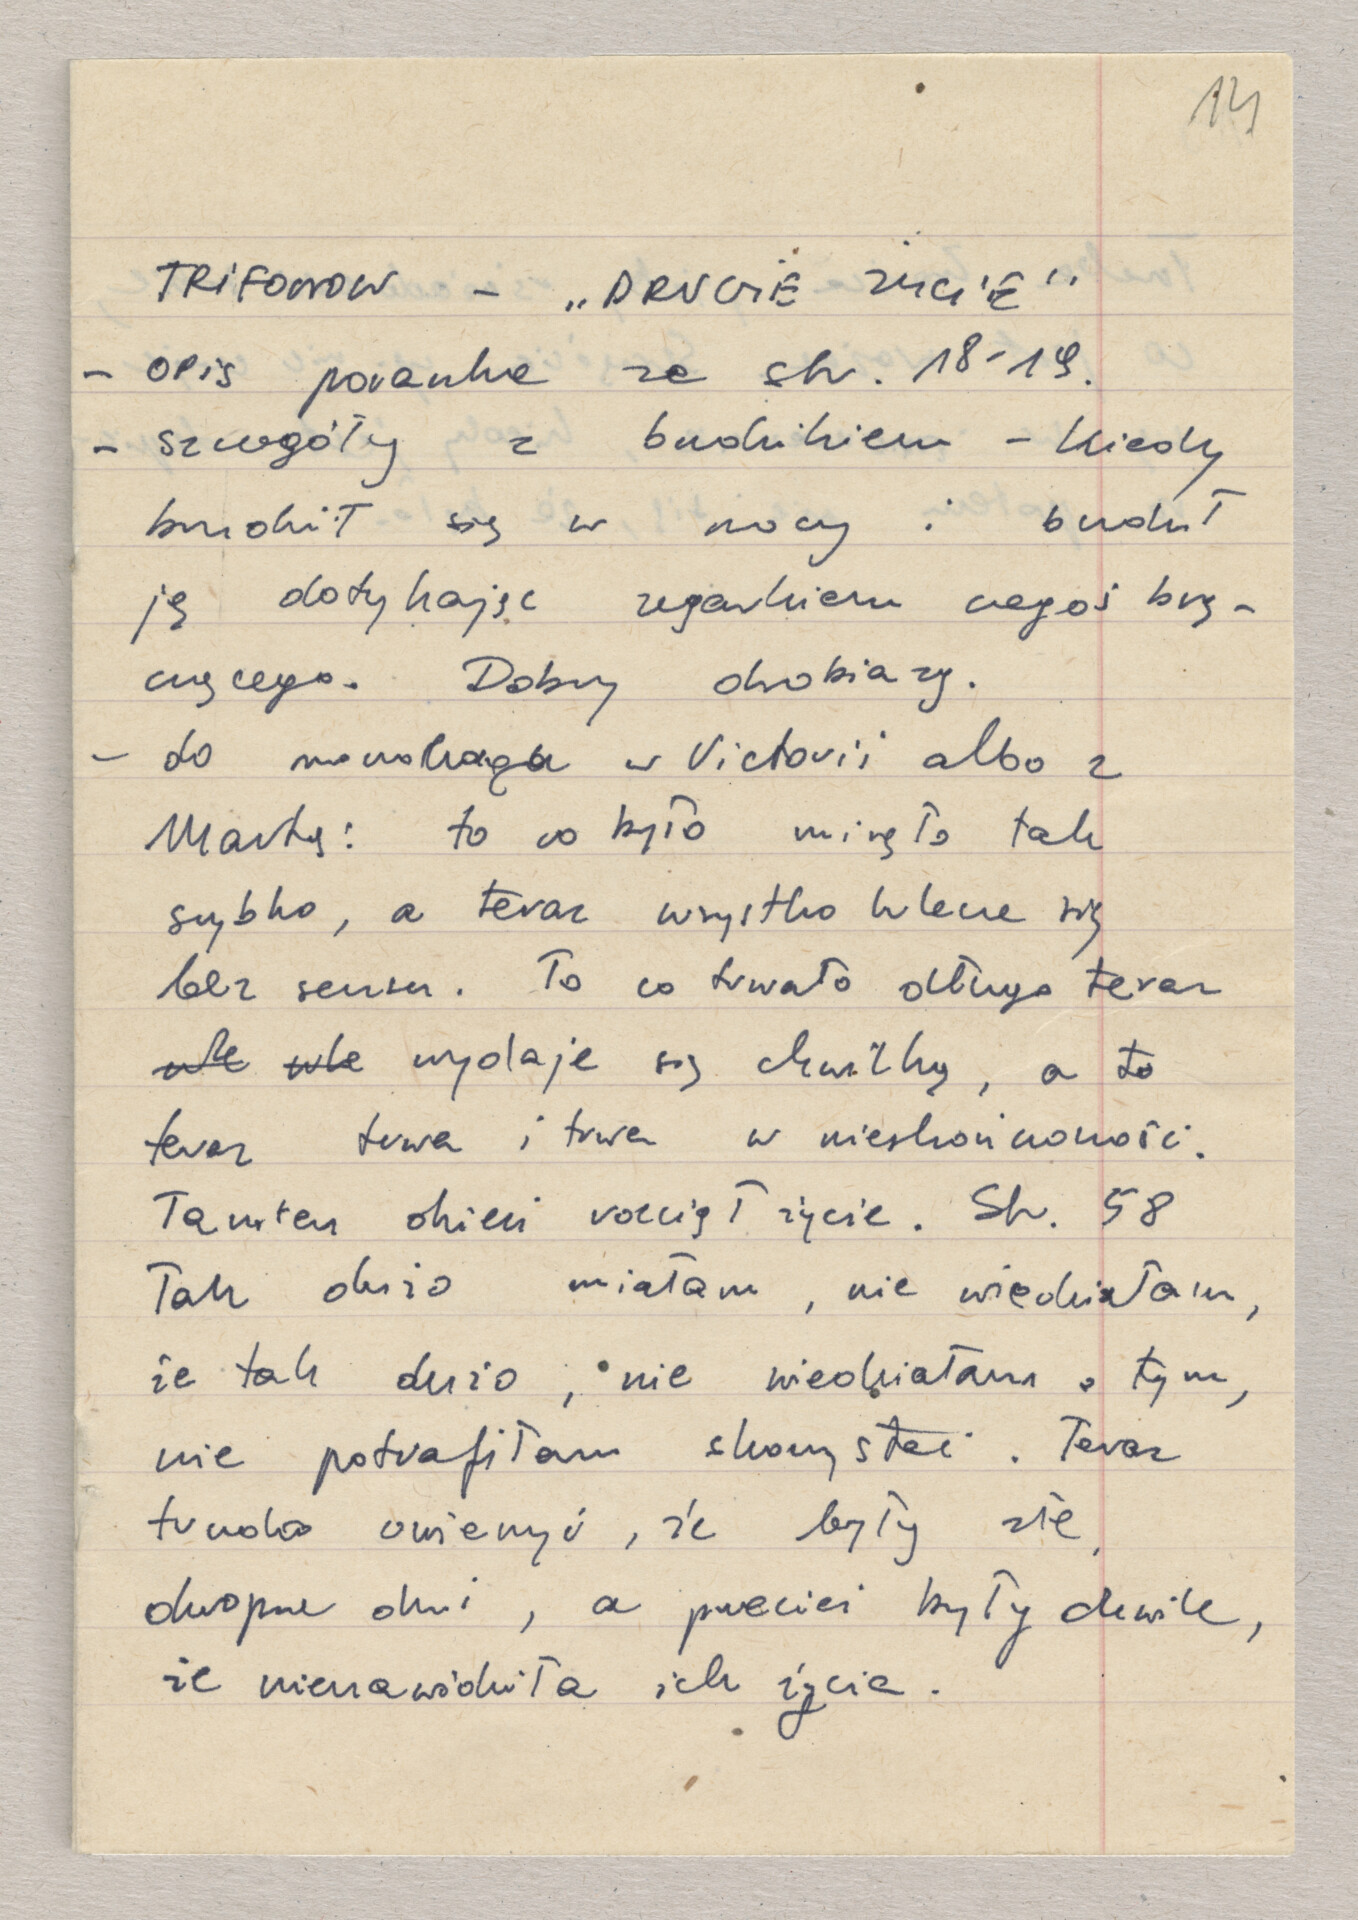 14
TRIFONOW - „DRUGIE ŻYCIE"
- opis poranka ze str. 18-19.
- szczegóły z budzikiem - kiedy
budził się w nocy i budził
ją dotykając zegarkiem czegoś brzę-
czącego. Dobry drobiazg.
- do monologu w Victorii albo z
Martą: to co było minęło tak
szybko, a teraz wszystko wlecze się
bez sensu. To co trwało długo teraz
wydaje się chwilką, a to
teraz trwa i trwa w nieskończoność.
Tamten dzień rozciął życie. Str. 58
Tak dużo miałam, nie wiedziałam,
że tak dużo, nie wiedziałam o tym,
nie potrafiłam skorzystać. Teraz
trudno uwierzyć, że były złe,
okropne dni, a przecież były chwile,
że nienawidziła ich życia.